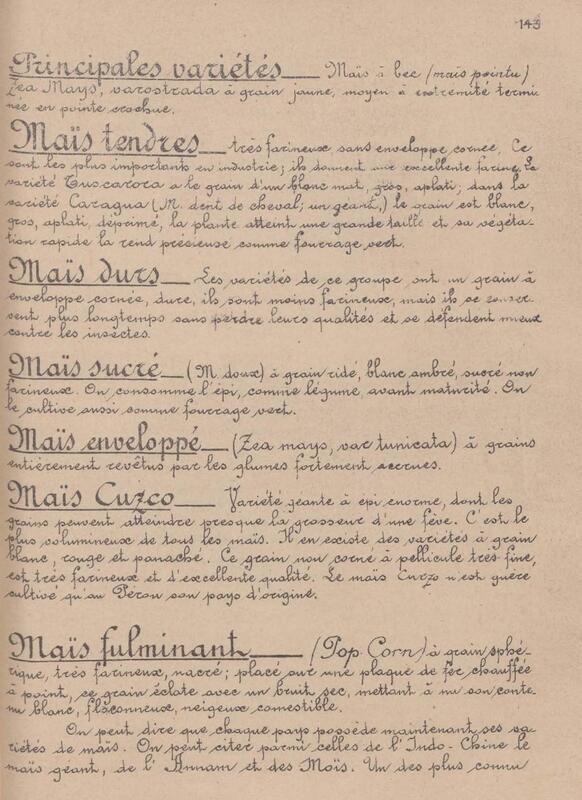 143
Principales variétés__ Maïs à bec (maïs pointu)
Zea Mays, varostrada à grain jaune, moyen à extrémité termi
née en pointe crochue.
Maïs tendres__ très farineux sans enveloppe cornée. Ce
sont les plus importants en industrie; ils donnent une excellente farine, la
variété Tuscarora a le grain d'un blanc mat, gros, aplati; dans la
variété Caragua (M. dent de cheval; un géant,) le grain est blanc,
gros, aplati, déprimé, la plante atteint une grande taille et sa végéta-
tion rapide la rend précieuse comme fourrage vert.
Maïs durs__ Les variétés de ce groupe ont un grain à
enveloppe cornée, dure, ils sont moins farineux, mais ils se conser-
vent plus longtemps sans perdre leurs qualités et se défendent mieux
contre les insectes.
Maïs sucré__ (M. doux) à grain ridé, blanc ambré, sucré non
farineux. On consomme l'épi, comme légume, avant maturité. On
le cultive aussi comme fourrage vert.
Maïs enveloppé__ (Zea mays, var tunicata) à grains
entièrement revêtus par les glumes fortement accrues.
Maïs Cuzco__ Variété géante à epi énorme, dont les
grains peuvent atteindre presque la grosseur d'une fève. C'est le
plus volumineux de tous les maïs. Il en existe des variétés à grain
blanc, rouge et panaché. Ce grain non corné à pellicule très fine,
est très farineux et d'excellente qualité. Le maïs Curzo n'est guère
cultivé qu'au Pérou son pays d'origine.
Maïs fulminant__ (Pop Corn) à grain sphé-
rique, très farineux, nacré; placé sur une plaque de fer chauffée
à point, ce grain éclate avec un bruit sec, mettant à nu son conte-
nu blanc, floconneux, neigeux comestible.
On peut dire que chaque pays possède maintenant ses va-
riétés de maïs. On peut citer parmi celles de l'Indo-Chine le
maïs géant, de l'Annam et des Moïs. Un des plus connu